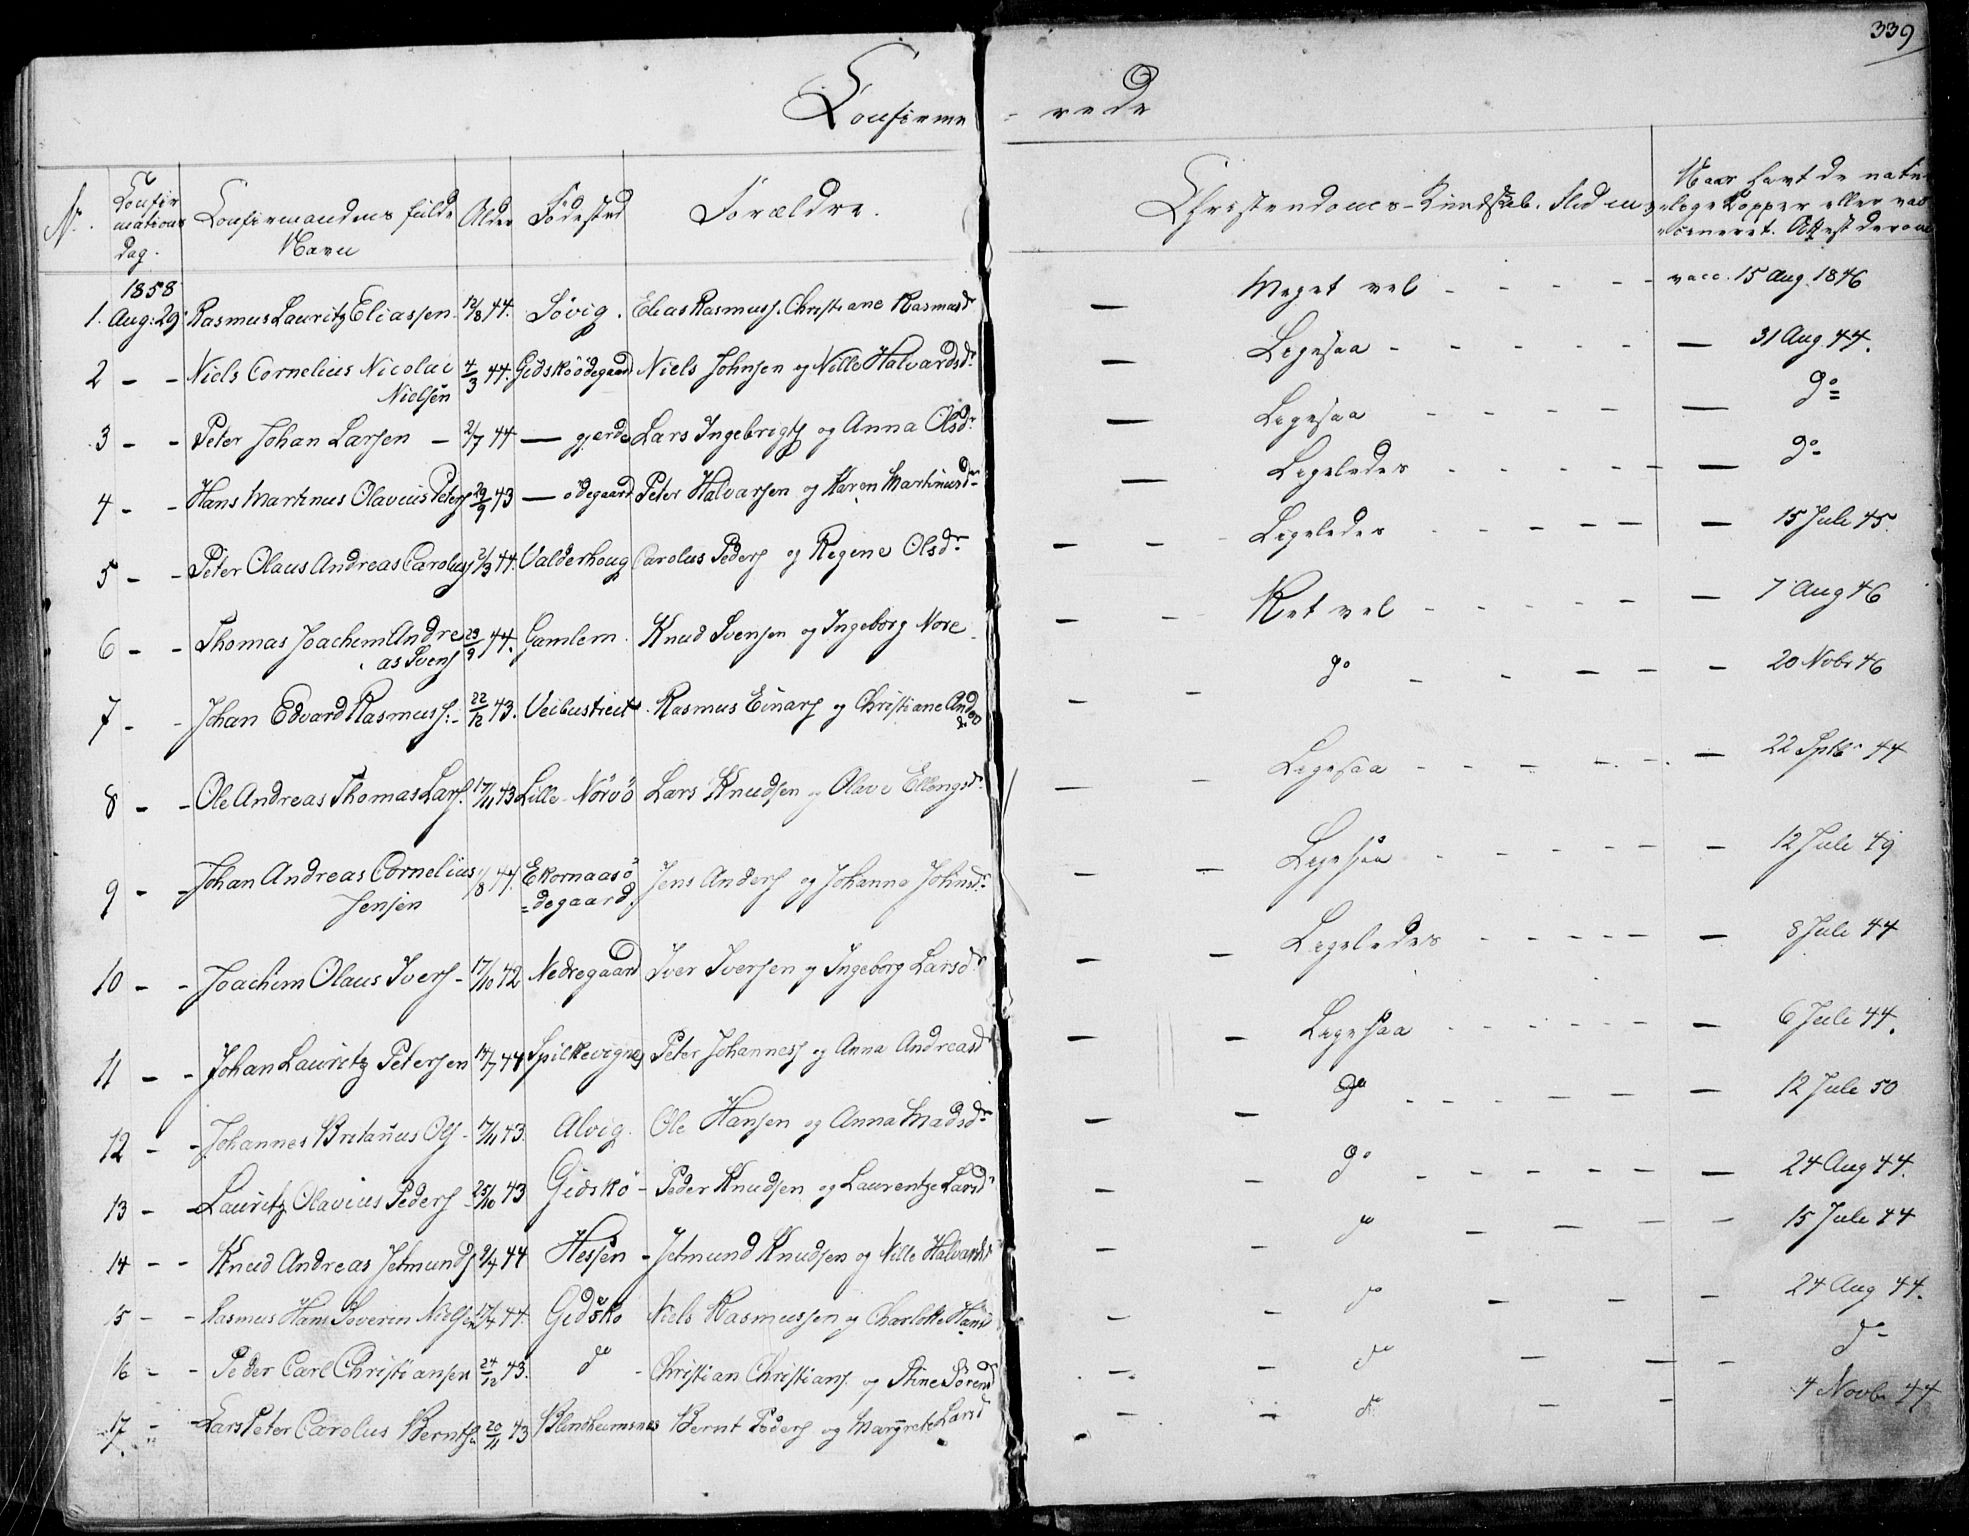 339
Confirme - rede
Nr. Confir mations dag. Confirmandens fulde Navn Alder Födested Forældre. Christendoms-Kundskab. Flid Naar havt de natu- lige Kopper eller vac- cineret. Attest derom
1858
1. Aug: 29 Rasmus Lauritz Eliassen 12/8 44. Søvig. Elias Rasmuss. Christiane Rasmusd — Meget vel - - - - vacc. 15 Aug. 1846
2 - - Niels Cornelius Nicolai 4/3 44. Gidskö ödegaard Niels Johnsen og Nille Halvardsdr — Ligesaa - - - - - — 31 Aug 44.
Nielsen
3 - - Peter Johan Larsen - 2/7 44 — gjerde Lars Ingebrigts og Anna Olsdr — Ligesaa - - - - — do
4 - - Hans Martinus Olavius Peters 29/9 43 — ödegaard Peter Halvarsen og Karen Martinusdr — Ligeledes - - - - — do
5 - - Peter Olaus Andreas Carolus 2/3 44. Valderhoug Carolus Peders og Regine Olsdr — - Ligeledes - - - - — 15 Juli 45.
6 - - Thomas Joachim Andre 23/9 44. Gamlem. Knud Svensen og Ingeborg Nore — - Ret vel - - - - — 7 Aug 46
as Svens
7 - - Johan Edvard Rasmuss: - 22/12 43. Veibustreit. Rasmus Einars og Christiane Andr — - do - - - - — 20 Nobr 46
8 - - Ole Andreas Thomas Lars. 17/11 43 Lille-Nörvö Lars Knudsen og Olave Ellengsdr — - Ligesaa - - - - — 22 Sptbr 44
9 - - Johan Andreas Cornelius 1/8 44. Ekornaasö Jens Anders og Johanne Johnsdr — - Ligesaa - - - - — 12 Juli 49
Jensen =degaard.
10 - - Joachim Olaus Ivers - 17/10 42 Nedregaard Iver Iversen og Ingeborg Larsdr — - Ligeledes - - - - — 8 Juli 44
11 - - Johan Lauritz Petersen 14/7 44 Spilkevigne Peter Johanness og Anna Andreasd — - Ligesaa - - - - — 6 Juli 44.
12 - - Johannes Britanus Ols - 17/11 43. Alvig. Ole Hansen og Anna Madsdr — - do - - - - — 12 Juli 50
13 - - Lauritz Olavius Peders - 25/10 43 Gidskö - Peder Knudsen og Laurentze Larsd — - do - - - - — 24 Aug 44.
14 - - Knud Andreas Jetmunds 9/4 44 Hessen - Jetmund Knudsen og Nille Halvardsd — - do - - - - 15 Juli 44
15 - - Rasmus Hans Severin Nielsen 17/4 44. Gidskö Niels Rasmussen og Charlotte Hansd — - do - - - 24 Aug 44.
16 - - Peder Carl Christiansen 24/12 43. do - Christian Christians. og Stine Sörensd — - do - - - do
17 - - Lars Peter Carolus Bernts. 20/11 43 Blindheimsnes Bernt Peders og Margrete Larsd - - do - - 4 Novbr 44